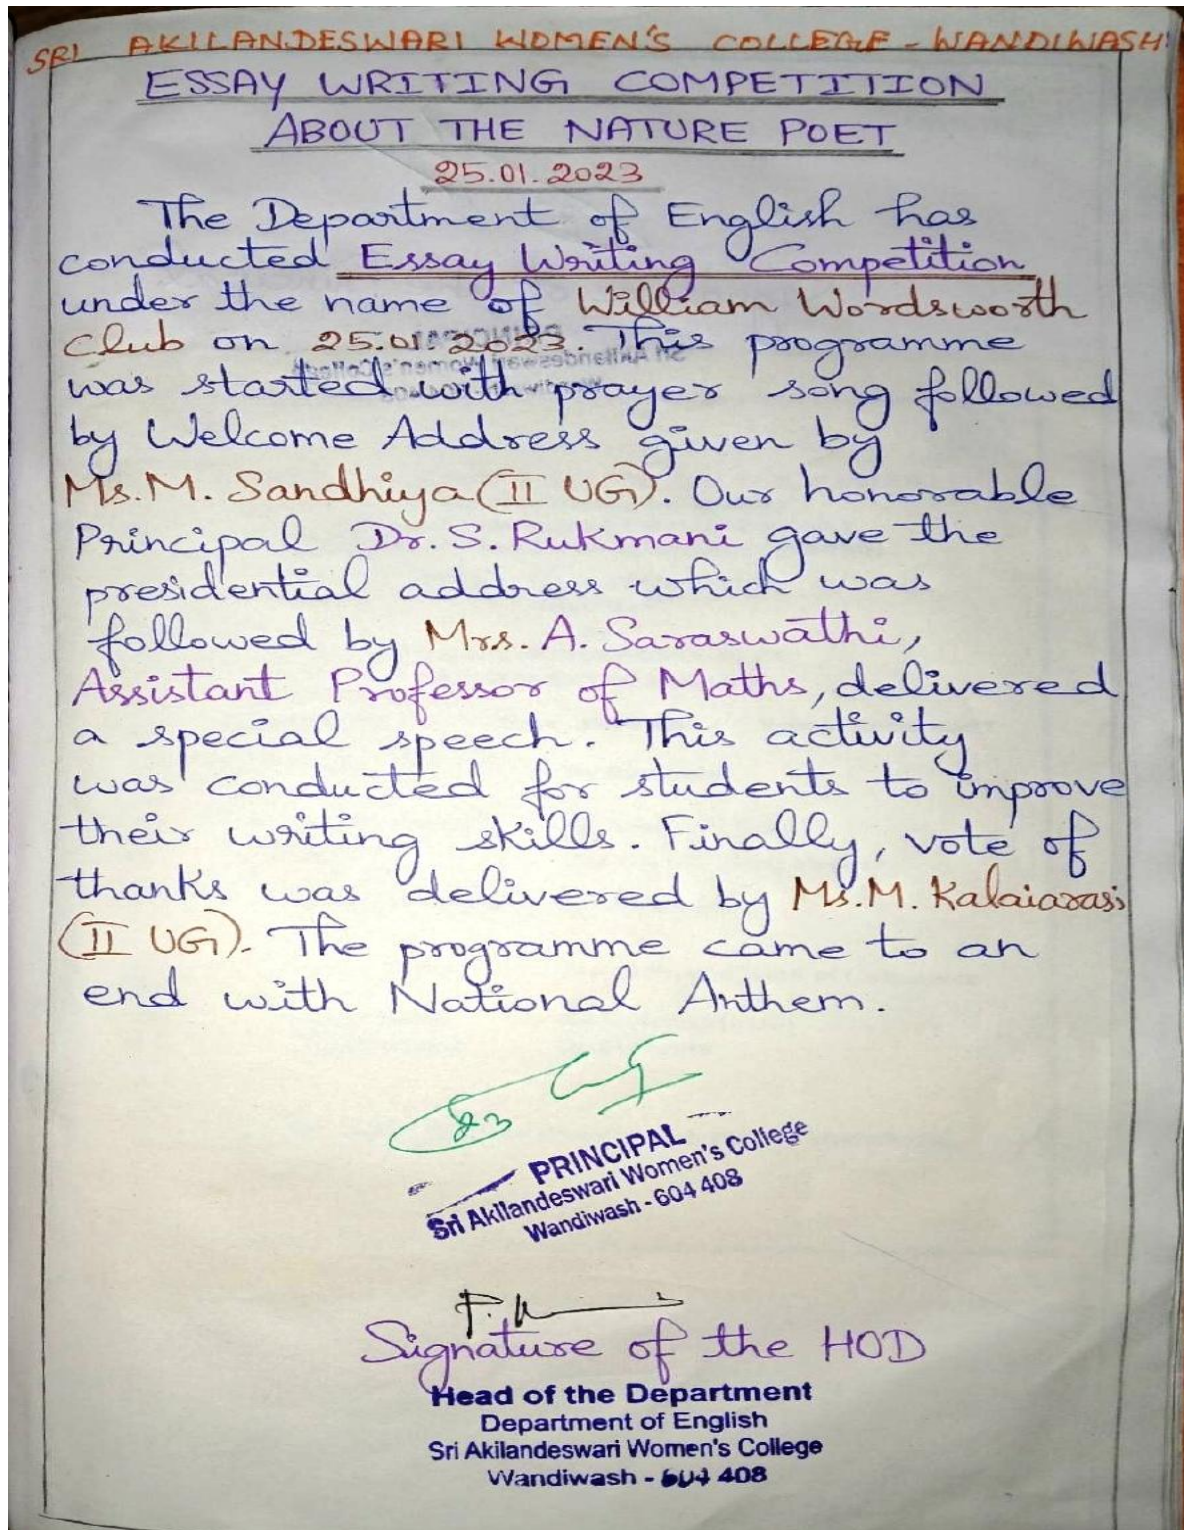 SRI AKILANDESWARI WOMEN'S COLLEGE - WANDIWASH
ESSAY WRITING COMPETITION
ABOUT THE NATURE POET
25.01.2023
The Department of English has
conducted Essay Writing Competition
under the name of William Wordsworth
Club on 25.01.2023. This programme
was started with prayer song followed
by Welcome Address given by
Ms.M. Sandhiya (II UG). Our honorable
Principal Dr. S. Rukmani gave the
presidential address which was
followed by Mrs. A. Saraswathi,
Assistant Professor of Maths, delivered
a special speech. This activity
was conducted for students to improve
their writing skills. Finally, vote of
thanks was delivered by Ms.M. Kalaiarasi
(II UG). The programme came to an
end with National Anthem.
PRINCIPAL
Sri Akilandeswari Women's College
Wandiwash - 604 408
Signature of the HOD
Head of the Department
Department of English
Sri Akilandeswari Women's College
Wandiwash - 604 408